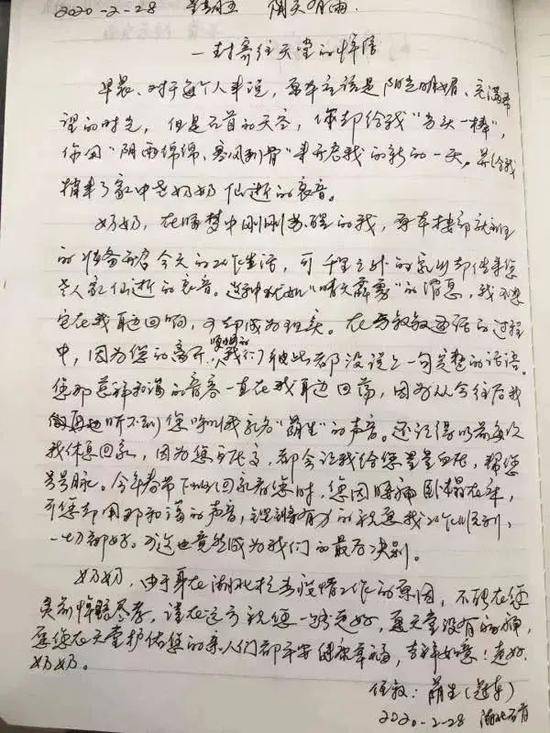 2020-2-28 星期五 阴天有雨
一封寄往天堂的悼信
早晨、对于每个人来说，原本应该是阳光明媚、充满希
望的时光，但是石首的天空，你却给我"当头一棒"，
你用"阴雨绵绵、寒风刺骨"来开启我的新的一天。并给我
捎来了家中老奶奶仙逝的哀音。
奶奶，在睡梦中刚刚苏醒的我，原本
的准备 今天的工作生活，可千里之外的家乡却传来您
老人家仙逝的哀音。这个犹如"晴天霹雳"的消息，我不想
它在我耳边回响，可却成为现实。在与 通话的过程
中，因为您的离开，我们彼此都没说上一句完整的话语。
您那慈祥和蔼的音容一直在我耳边回荡，因为从今往后我
再也听不到您呼叫我乳名"萌生"的声音。还记得以前每次
我休息回家，因为您 ，都会让我给您量量血压，帮您
号号脉。今年春节下班回家看您时，您因腰痛卧榻在床，
可您却用那和蔼的声音，铿锵有力的祝愿我工作顺利、
一切都好。可这也竟然成为我们的最后决别。
奶奶，由于身在湖北抗击疫情工作的原因，不能在您
灵前悼唁尽孝，请在这方祝您一路走好，愿天堂没有病痛，
愿您在天堂护佑您的亲人们都平安健康幸福，吉祥如意！走好
奶奶。
任敬：萌生
2020-2-28 湖北石首